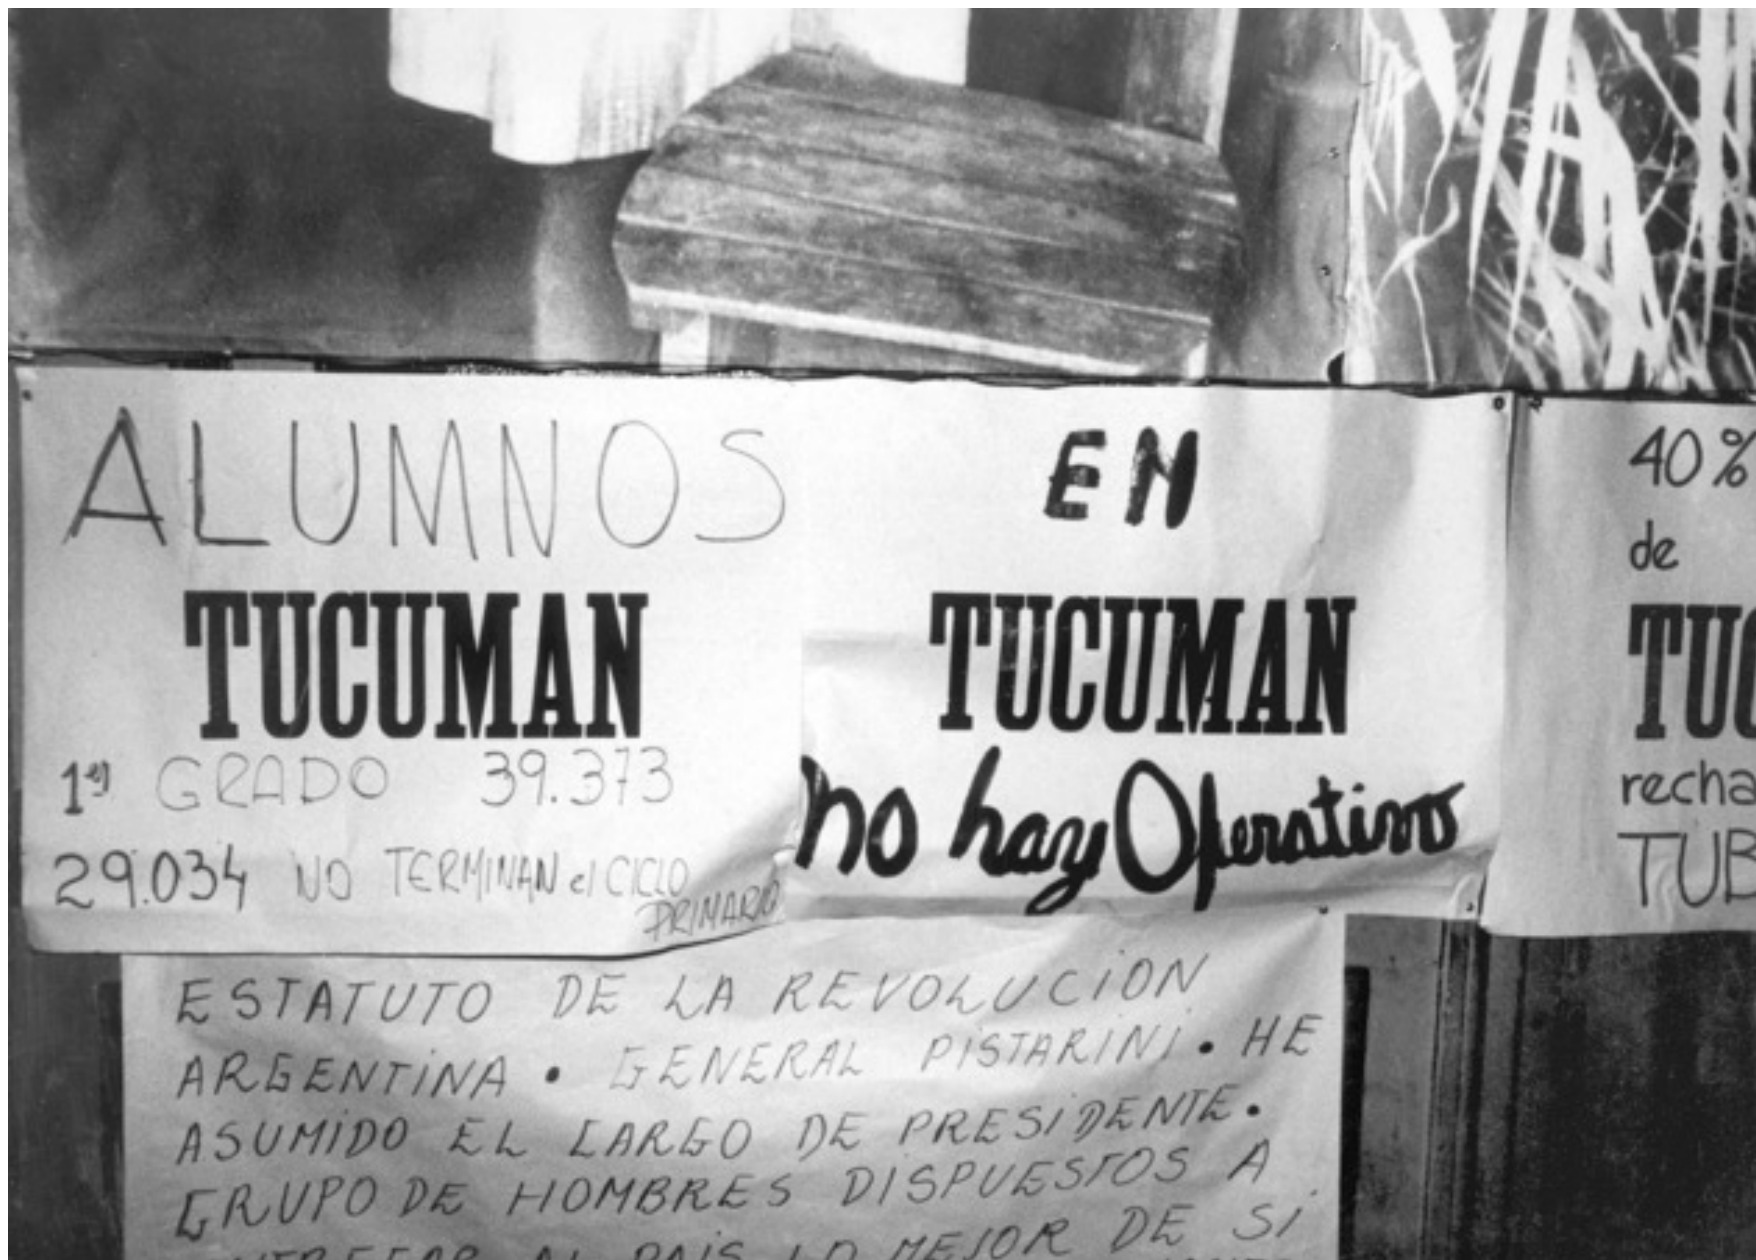 ALUMNOS
TUCUMAN
1er GRADO 39.373
29.034 NO TERMINAN el CICLO
PRIMARIO
EN
TUCUMAN
no hay Operativo
40%
de
TUC
recha
TUB
ESTATUTO DE LA REVOLUCION
ARGENTINA • GENERAL PISTARINI • HE
ASUMIDO EL CARGO DE PRESIDENTE •
GRUPO DE HOMBRES DISPUESTOS A
AL PAIS LO MEJOR DE SI